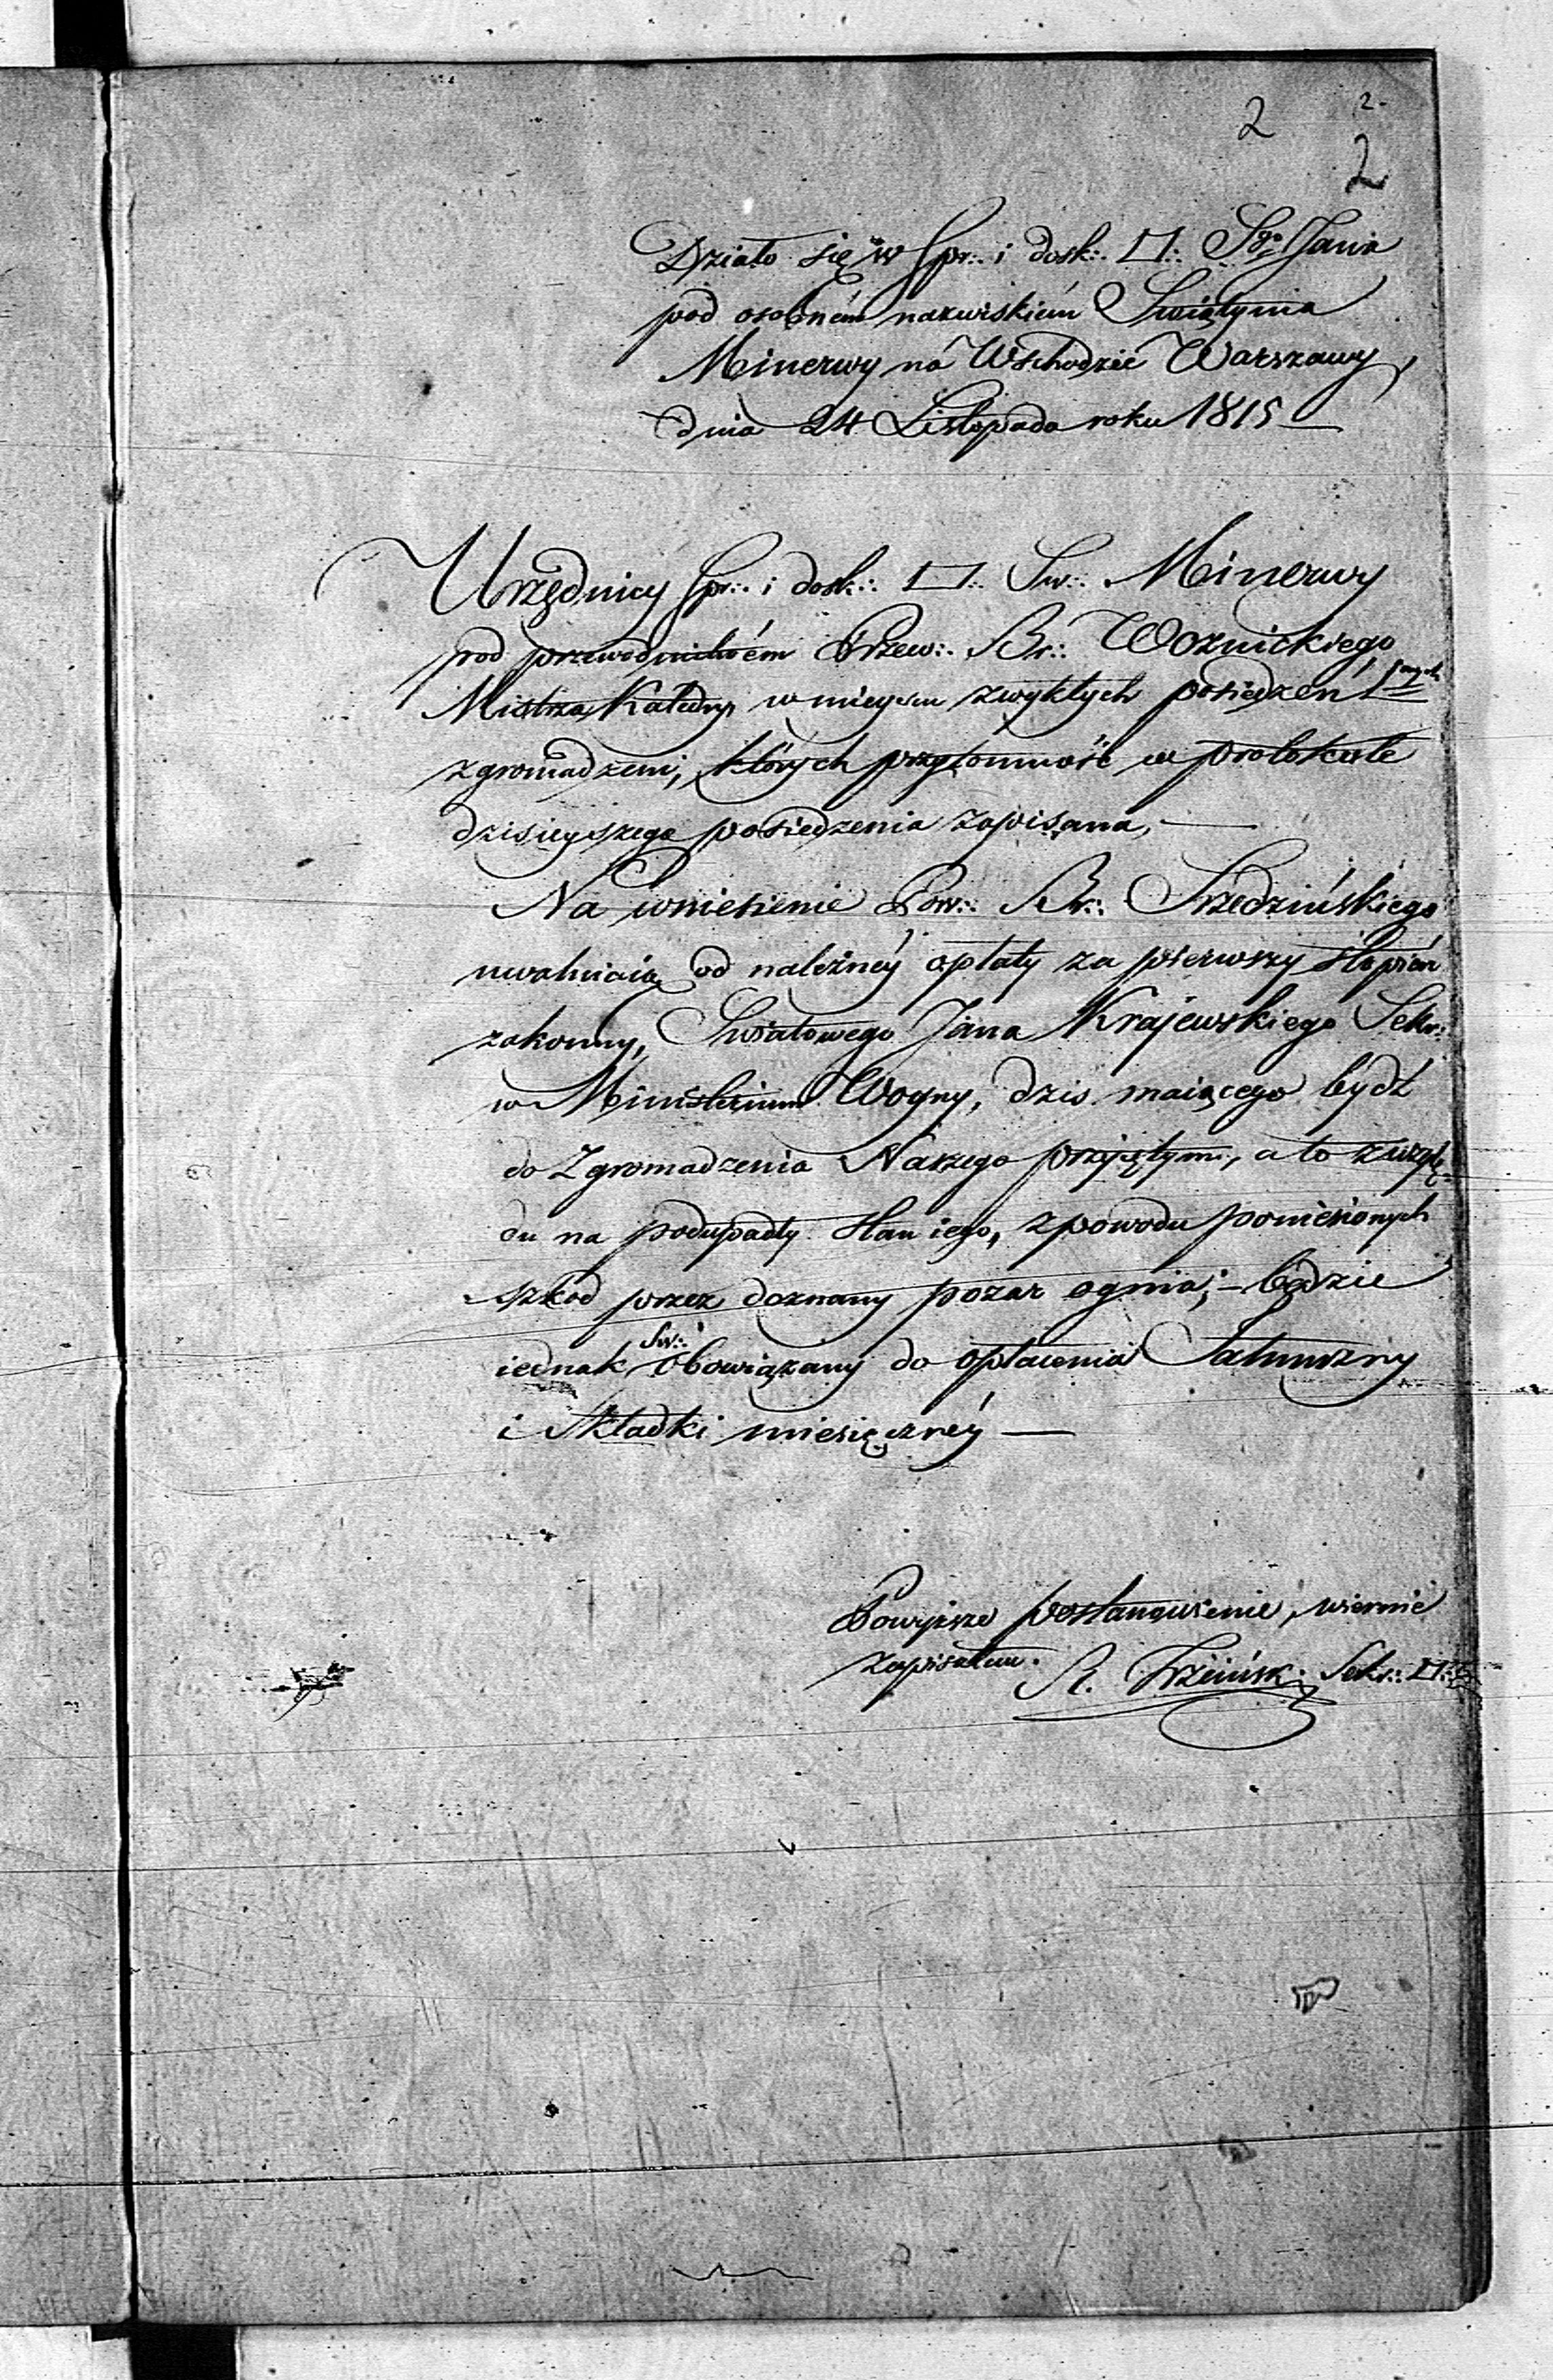 2 2.
2
Działo się w Spr∴ i dosk∴ □∴ Sgo Jana
pod osobném nazwiskiem Swiątynia
Minerwy na Wschodzie Warszawy,
dnia 24 Listopada roku 1815 —
Urzędnicy Spr∴ i dosk∴ □∴ Sw∴ Minerwy
pod przewodnictwém Przew∴ Br∴ Woznickiego
Mistrza Katedry w mieyscu zwykłych posiedzeń
zgromadzeni, których przytomność w protokule
dzisieyszego posiedzenia zapisana, —
Na wniesienie Pow∴ Br∴ Srzedzińskiego
uwalniaią od należnéy opłaty za pierwszy stopień
zakonny, Swiatowego Jana Krajewskiego Sekr:
w Ministerium Woyny, dzis maiącego bydź
do Zgromadzenia Naszego przyiętym, a to z wzglę-
du na podupadły stan iego, z powodu poniesionych
szkód przez doznany pożar ognia; – będzie
iednak Sw∴ obowiązany do opłacenia Jałmużny
i Składki miesięcznéy —
Powyższe postanowienie, wiernie
zapisałem.
Sekr∴ □∴